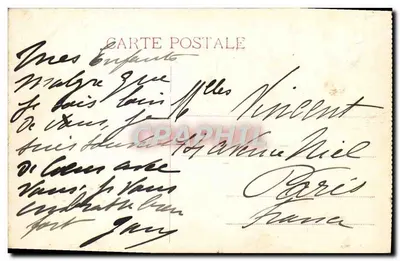 CARTE POSTALE
Mes Enfants
Malgré que
je suis loin
de vous, je
suis
de Coeur avec
vous, je vous
embrasse bien
fort
Mlles Vincent
avenue Niel
Paris
France